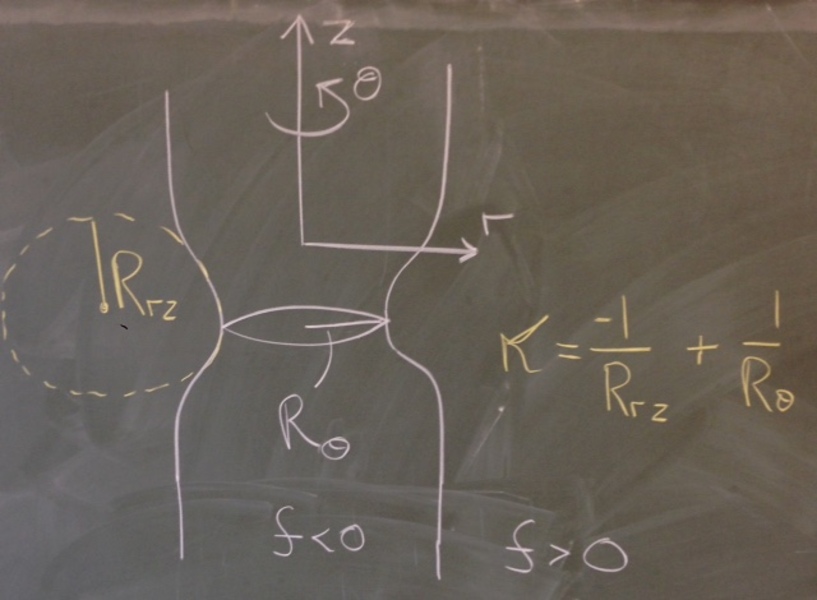 z
θ
r
R_{rz}
K = \frac{-1}{R_{rz}} + \frac{1}{R_θ}
R_θ
f<0
f>0